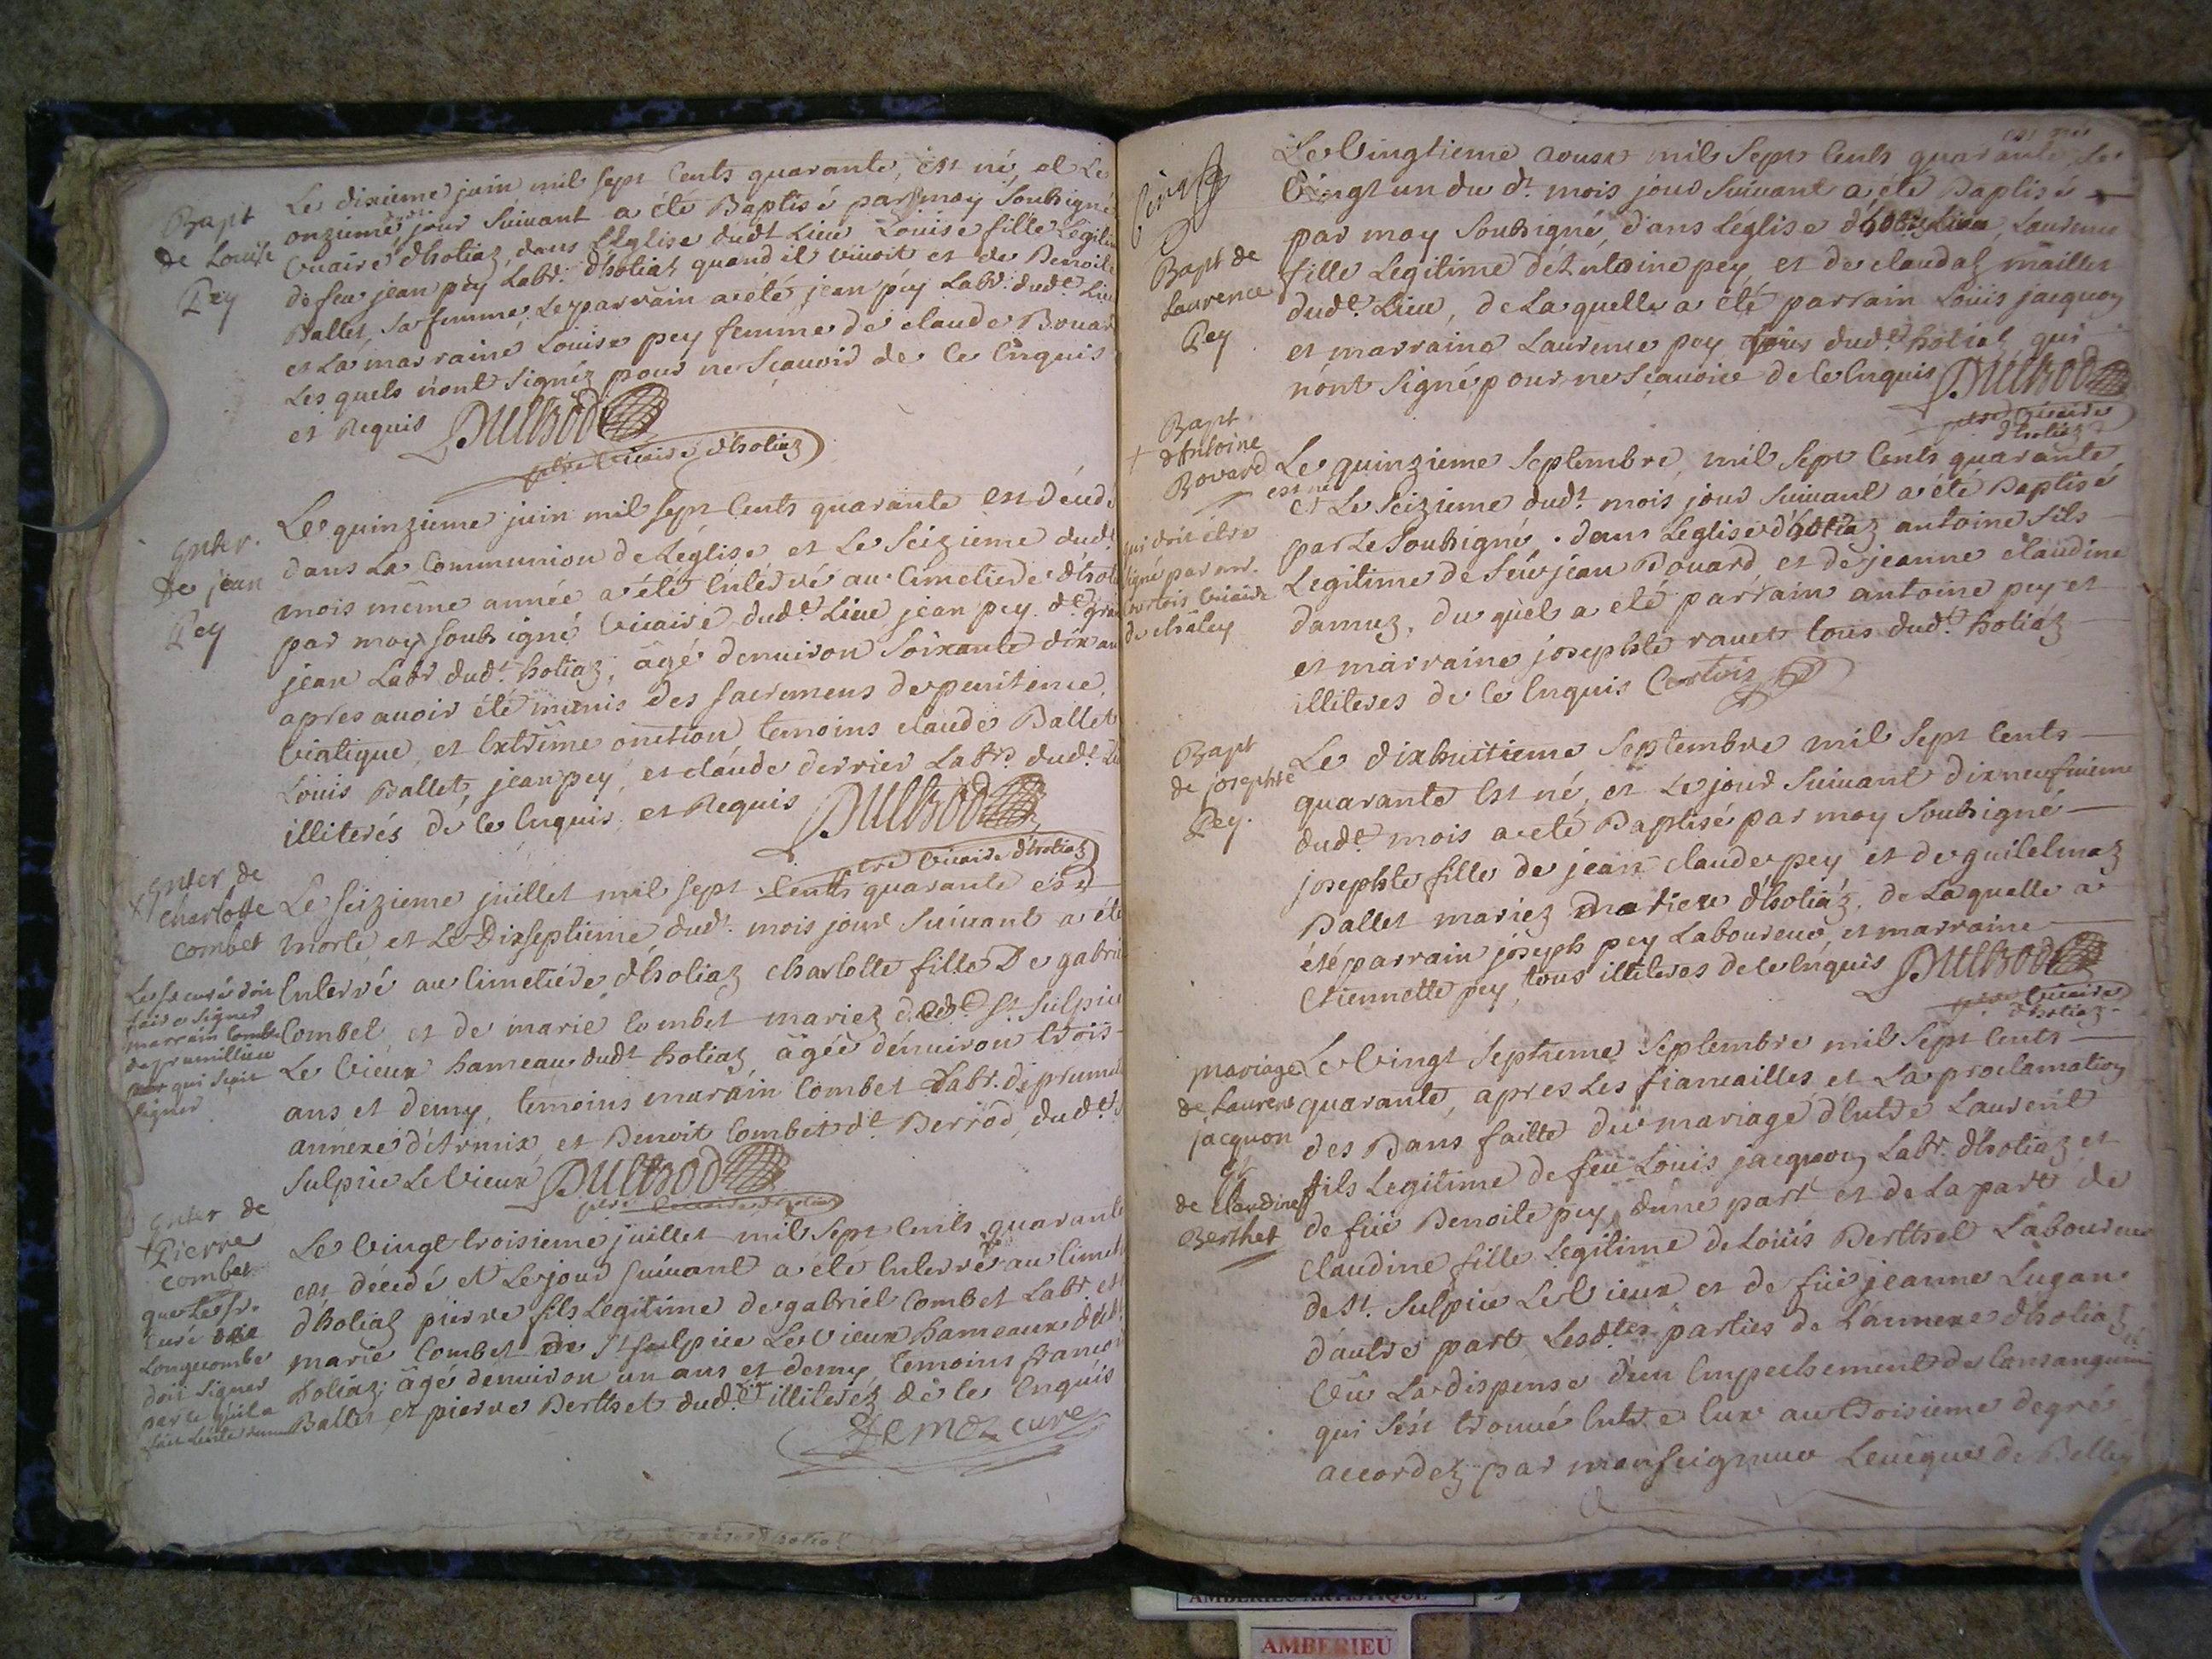 Bapt
de Louise
Pey
Le dixieme juin mil sept Cents quarante, est né, et Le
onzieme jour Suivant a été Baptisé par moy Soubsigné
Vicaire d'hotiaz, dans L'Eglise dudt Lieu Louise fille Legitim
de feu jean pey Labr. d'hotiaz quand il vivoit et de Benoite
Ballet, sa femme, Le parrain a été jean pey Labr. dud.t Lieu
et La marraine Louise pey femme de claude Bouar
Les quels n'ont signéz pour ne Sçavoir de ce Enquis
et Requis
ptre Vicaire d'hotiaz
Enter.
de jean
Pey
Le quinzieme juin mil sept Cents quarante est décedé
dans La Communion de L'église et Le Seizieme dudt
mois même année a été Enterré au Cimetiere d'hoti
par moy soubsigné Vicaire dud.t Lieu jean pey dt gran
jean Labr dudt hotiaz, âgé d'environ Soixante dix an
apres avoir été munis des Sacremens de penitence,
Viatique, et Extrême onction temoins claude Ballet
Louis Ballet, jean pey, et claude derrier Labrs dudt Li
illiterés de ce Enquis, et Requis
ptre Vicaire d'hotiaz
Enter de
+ charlotte
combet
Le Sr curé doit
faire signer
marrain Combe
de prumillieu
qui sçait
signer
Le seizieme juillet mil sept Cents quarante est
morte et Le Dixseptieme dudt. mois jour Suivant a été
Enterré au Cimetiére d'hotiaz charlotte fille De gabrie
Combet, et de marie Combet mariez de St. Sulpice
Le Vieux hameau dudt hotiaz âgée d'environ trois
ans et demy, temoins marain Combet Labr. de prumil
annexe d'Armix, et Benoit Combet dt. Berrod, dud.t S
Sulpice Le Vieux
ptre Vicaire d'hotiaz
Enter de
+ Pierre
combet
que Le Sr.
Curé de
Longecombe
doit signer
parce qu'il a
fait
Le Vingt troisieme juillet mil Sept Cents quarante
est décedé et Le jour suivant a été Enterré au Cimeti
d'hotiaz pierre fils Legitime de gabriel Combet Labr. et
marie Combet de St Sulpice Le Vieux hameaux dudt
hotiaz, âgé d'environ un ans et demy temoins francoi
Ballet et pierre Berthet dud.t illiteréz de ce Enquis
curé
Bapt de
Laurence
Pey
est née
Le Vingtieme aoust mil Sept Cents quarante, Le
Vingt un du dt. mois jour Suivant a été Baptisé
par moy Soubsigné, dans L'église d'hotiaz, Laurence
fille Legitime d'Antoine pey, et de claudaz maillet
dud.t Lieu, de La quelle a été parrain Loüis jacquon
et marraine Laurence pey tous dud.t hotiaz qui
n'ont signé pour ne Sçavoir de ce Enquis
ptre Vicaire
d'hotiaz
Bapt
+ d'Antoine
Bovard
qui doit être
signé par mr.
Cortois Vicaire
de chaley
Le quinzieme Septembre, mil Sept Cents quarante
est né
et Le Seizieme dudt. mois jour Suivant a été Baptisé
par Le Soubsigné. dans L'eglise d'hotiaz antoine fils
Legitime de feu jean Bouard et de jeanne claudine
damuz, du quel a été parrain antoine pey et
et marraine josephte ravet tous dud.t hotiáz
illiteres de ce Enquis Cortois
Bapt
de josephte
Pey.
Le dixhuitieme Septembre mil Sept Cents
quarante Est né, et Le jour Suivant dixneufvieme
dud.t mois a été Baptisé par moy Soubsigné
josephte fille de jean claude pey, et de guilelmaz
Ballet mariez d'hotiáz, de La quelle a
été parrain joseph pey Laboureur, et marraine
Etiennette pey, tous illiteres de ce Enquis
ptre Vicaire
d'hotiaz
mariage
de Laurent
jacquon
et
de claudine
Berthet
Le Vingt Septieme Septembre mil Sept Cents
quarante, apres Les fiancailles, et La proclamation
des Bans faitte du mariage d'Entre Laurent
fils Legitime de feu Louis jacquon Labr. d'hotiaz et
de füe Benoite pey, d'une part et de La part de
claudine fille Legitime de Loüis Berthet Laboureur
de St. Sulpice Le Vieux et de füe jeanne Lugan
d'autre part, Lesdtes parties de L'annexe d'hotiaz
Vû La dispense d'un Empeschement de Consanguini
qui S'est trouvé Entre Eux au troisieme degré
accordez par monseigneur L'evêque de Belley
AMBERIEU ARTISTIQUE
AMBERIEU